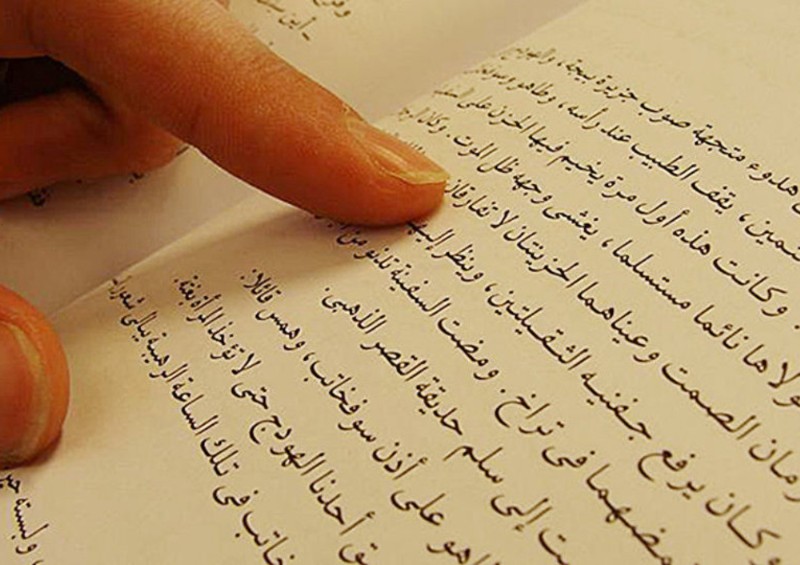 هدوء متجهة صوب جزيرة بيجة، و
يقف الطبيب عند رأسه، وطاهو وسوفخاتب
وكانت هذه أول مرة يخيم فيها الحزن على
مولاها نائما مستسلما، يغشى وجهه ظل الموت. وكان
زمان الصمت وعيناهما الحزينتان لا تفارقان
وكان يرفع جفنيه الثقيلتين، وينظر
يغمضهما في تراخ. ومضت السفينة تدنو من
ت إلى سلم حديقة القصر الذهبي.
اهو على أذن سوفخاتب، وهمس قائلا:
ق أحدنا الهودج حتى لا تؤخذ المرأة بغتة.
خاتب في تلك الساعة الرهيبة يبالي شعور
، ولبسته